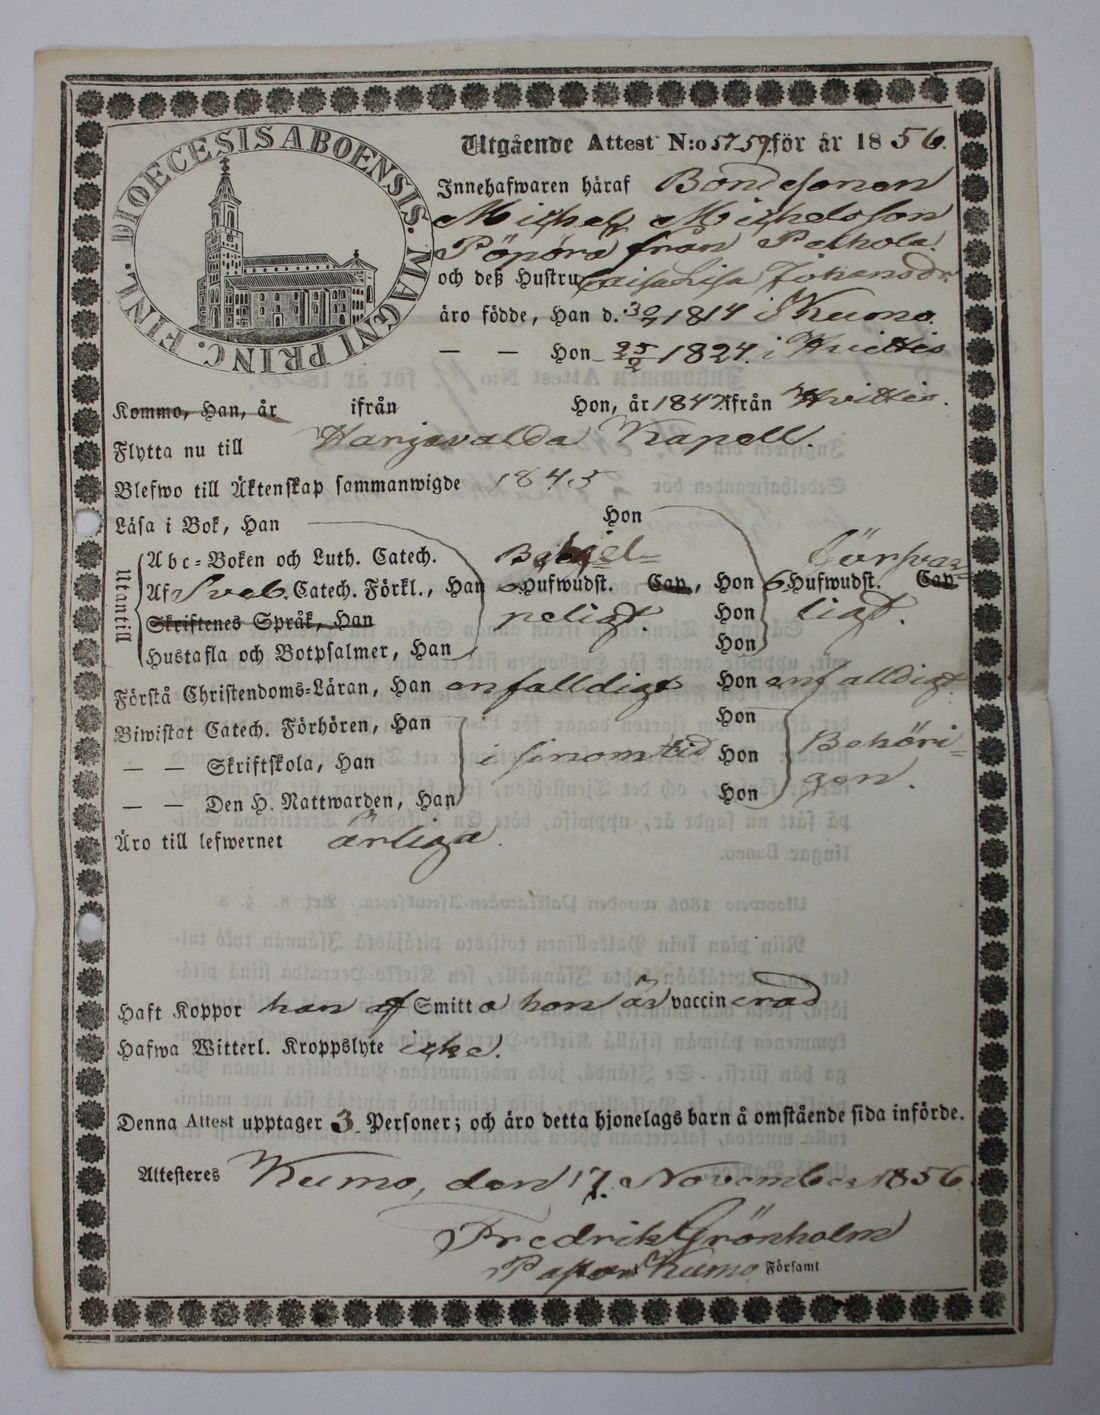 DIOECESIS ABOENSIS. MAGNI PRINC. FINL.
Utgående Attest N:o 57 59 för år 1856.
Innehafwaren häraf Bondesonen
Michel Michelsson
Pöpörö från Pelhola
och deß Hustru Caisa Lisa Johansdr
äro födde, Han d. 30/9 1814 i Kumo.
— — Hon 25/2 1824. i Hvittis
Kommo, Han, år ifrån Hon, år 1847 ifrån Hvittis.
Flytta nu till Harjavalda Kapell.
Blefwo till Äktenskap sammanwigde 1845
Läsa i Bok, Han Hon
Utantill
Abc-Boken och Luth. Catech. Behjel= försvar=
Af Sveb. Catech. Förkl., Han 6 Hufwudst. Cap., Hon 6 Hufwudst. Cap
Skriftenes Språk, Han peligt. Hon ligt.
Hustafla och Botpsalmer, Han Hon
Förstå Christendoms-Läran, Han enfalldigt Hon enfalldigt
Biwistat Catech. Förhören, Han Hon
— — Skriftskola, Han i sinom tid Hon Behöri=
— — Den H. Nattwarden, Han Hon gen.
Äro till lefwernet ärliga.
Haft Koppor han af Smitta hon är vaccinerad
Hafwa Witterl. Kroppslyte icke.
Denna Attest upptager 3 Personer; och äro detta hjonelags barn å omstående sida införde.
Attesteres Kumo, den 17. November 1856.
Fredrik Grönholm
Pastor i Kumo Församl